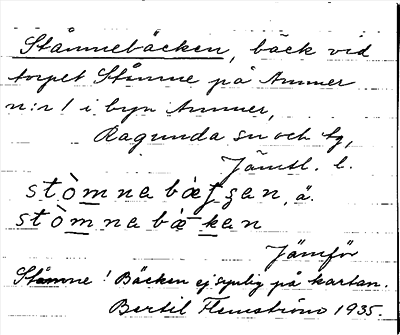 Stånnebäcken, bäck vid
torpet Stånne på Ammer
n:r 1 i byn Ammer,
Ragunda sn och tg,
Jämtl. l.
stòmnabæʃʒan, ä.
stòmnabæ̀kan
Jämför
Stånne! Bäcken ej synlig på kartan.
Bertil Flemström 1935.